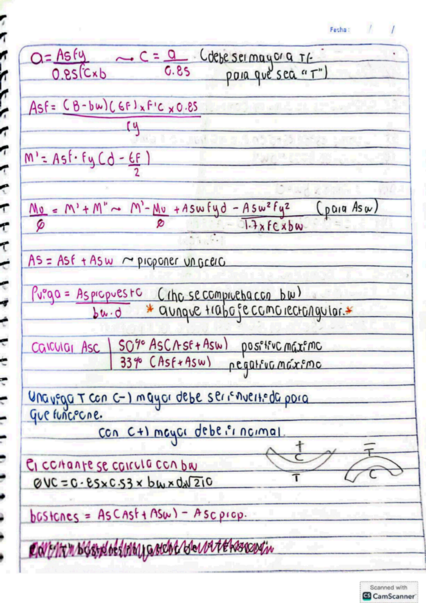 Fecha: / /
a = Asfy ~ c = a (debe ser mayor a tf
0.85f'c×b 0.85 para que sea "T")
Asf = (B-bw)(tf)×f'c×0.85
fy
M' = Asf·fy(d - tf)
2
Mu = M' + M" ~ M' - Mu + Aswfyd - Asw²fy² (para Asw)
Ø Ø 1.7×f'c×bw
As = Asf + Asw ~ proponer un acero
ρviga = Aspropuesto (rho se comprueba con bw)
bw·d * aunque trabaje como rectangular.*
Calcular Asc | 50% As(Asf+Asw) positivo máximo
33% (Asf+Asw) negativo máximo
Una viga T con (-) mayor debe ser invertida para
que funcione.
con (+) mayor debe ir normal.
+
C
T
-
T
C
El cortante se calcula con bw
ØVc = 0.85×0.53×bw×d√210
bastones = As(Asf+Asw) - Ascprop.
Scanned with
CS CamScanner